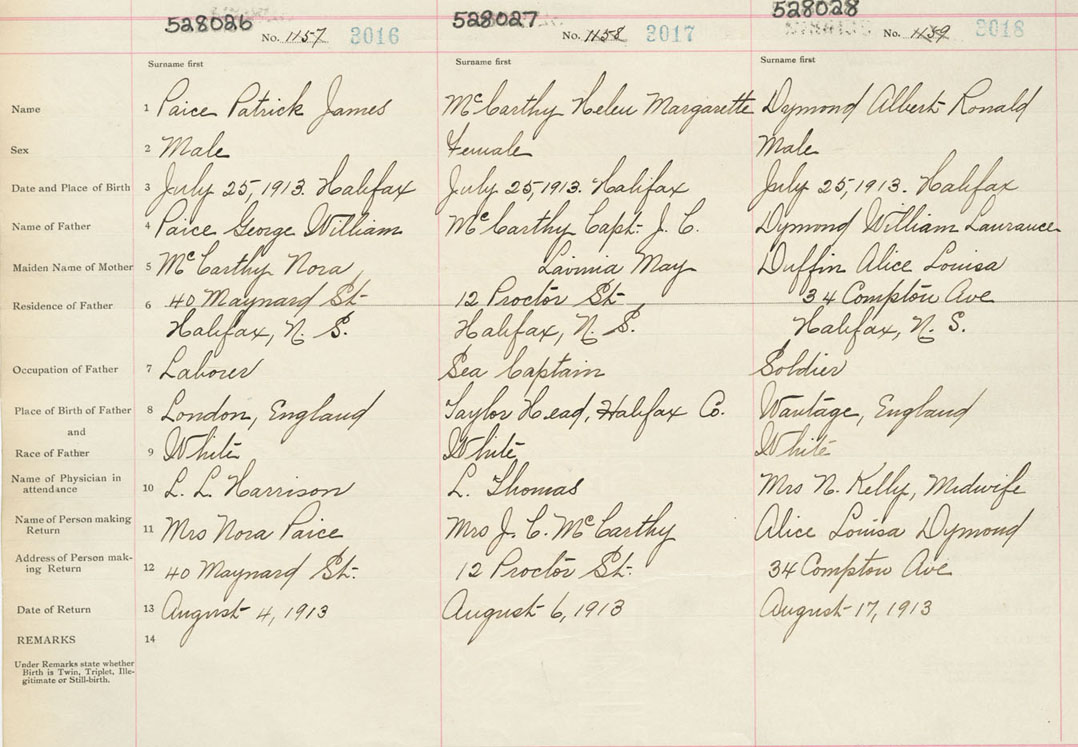 528026 528027 528028
No. 1157 2016 No. 1158 2017 No. 1159 2018
Surname first Surname first Surname first
Name 1 Paice Patrick James McCarthy Helen Margarette Dymond Albert Ronald
Sex 2 Male Female Male
Date and Place of Birth 3 July 25, 1913. Halifax July 25, 1913. Halifax July 25, 1913. Halifax
Name of Father 4 Paice George William McCarthy Capt. J. C. Dymond William Laurance
Maiden Name of Mother 5 McCarthy Nora Lavinia May Duffin Alice Louisa
Residence of Father 6 40 Maynard St. 12 Proctor St. 34 Compton Ave
Halifax, N. S. Halifax, N. S. Halifax, N. S.
Occupation of Father 7 Laborer Sea Captain Soldier
Place of Birth of Father 8 London, England Taylor Head, Halifax Co. Wantage, England
and
Race of Father 9 White White White
Name of Physician in
attendance 10 L. L. Harrison L. Thomas Mrs N. Kelly, Midwife
Name of Person making
Return 11 Mrs Nora Paice Mrs J. C. McCarthy Alice Louisa Dymond
Address of Person mak-
ing Return 12 40 Maynard St. 12 Proctor St. 34 Compton Ave
Date of Return 13 August 4, 1913 August 6, 1913 August 17, 1913
REMARKS 14
Under Remarks state whether
Birth is Twin, Triplet, Ille-
gitimate or Still-birth.